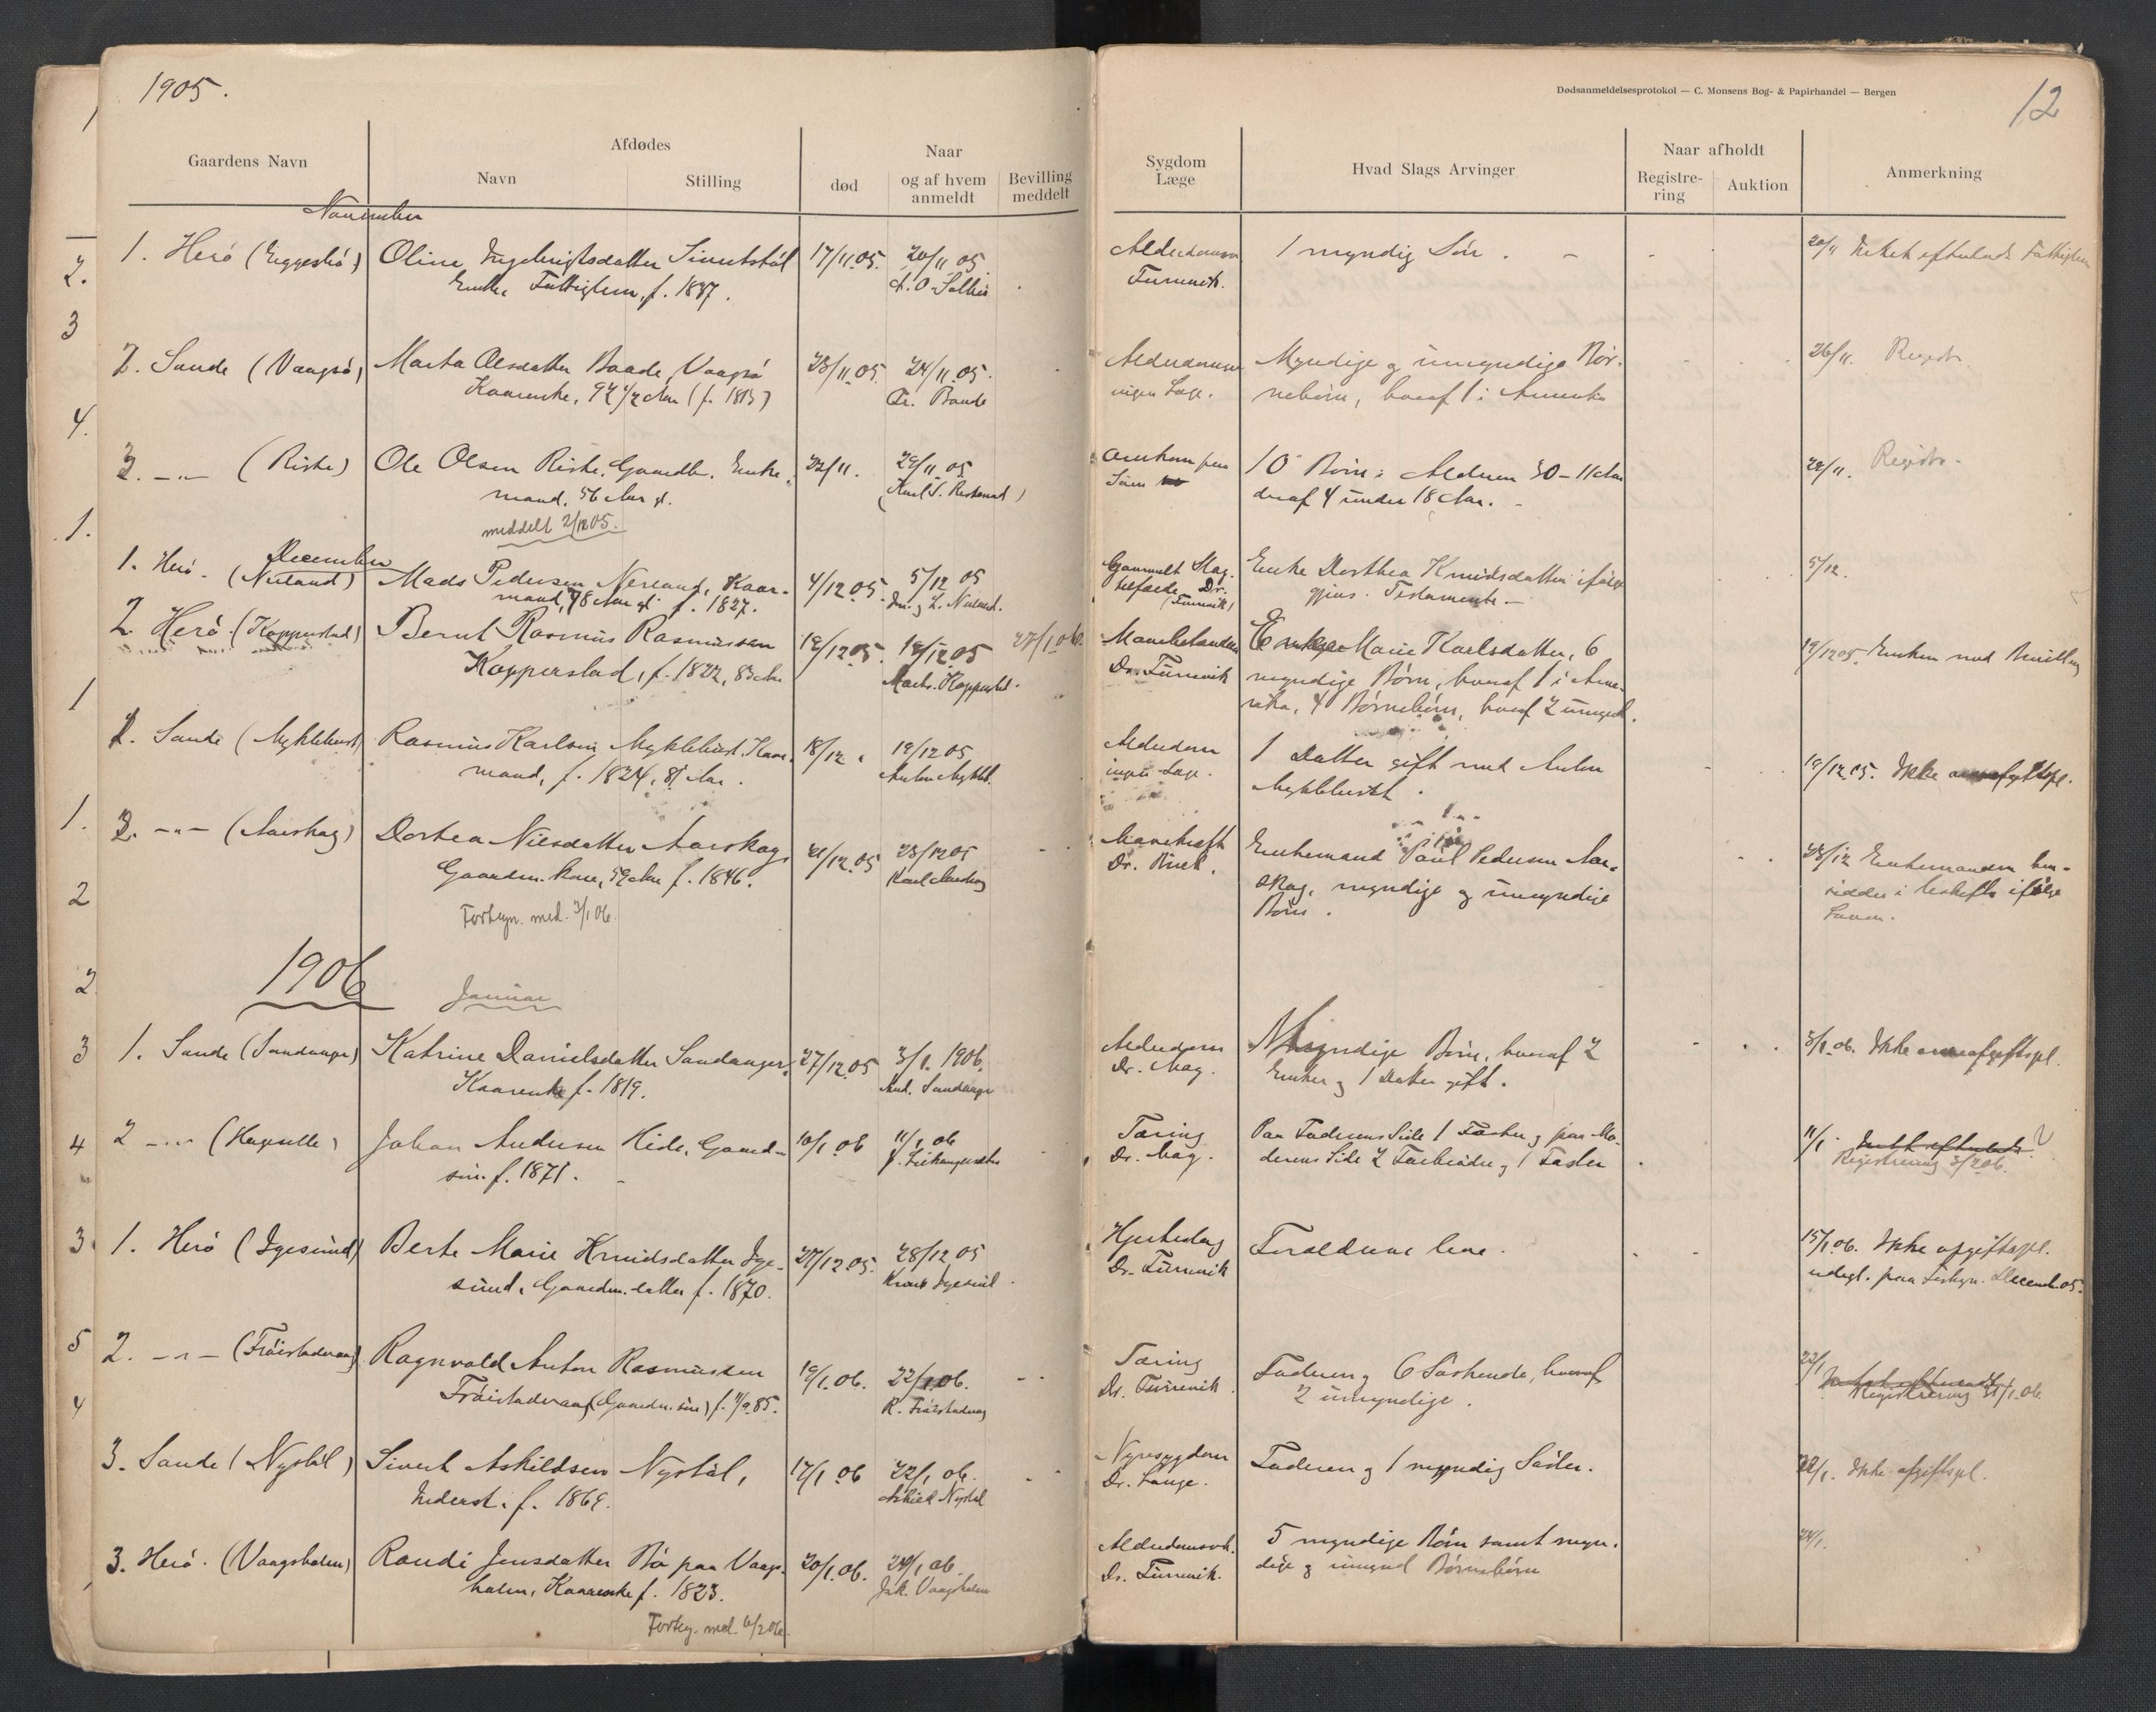 1905.
Gaardens Navn
Afdødes
Navn
Stilling
død
Naar
og af hvem
anmeldt
Bevilling
meddelt
November
1. Herö (Eggesbö) Oline Ingebrigtsdatter 17/11 05. 20/11 05.
Enke, Fattiglem, f. 1837.
2. Sande (Vaagsö) Marta Olsdatter Baade Vaagsö 23/11 05. 24/11 05.
Kaarenke, 92 1/2 Aar (f. 1813)
3. -"- (Riste) Ole Olsen Riste, Gaardb. Enke- 22/11. 29/11 05
mand, 56 Aar gl.
meddelt 2/12 05.
December
1. Herö. (Nerland) Mads Pedersen Nerland, Kaar- 4/12 05. 5/12 05
mand, 78 Aar gl. f. 1827.
2. Herö. (Kopperstad) Bernt Rasmus Rasmussen 18/12 05. 19/12 05 27/1 06.
Kopperstad, f. 1822, 83 Aar
1. Sande (Myklebust) Rasmus Karlsen Myklebust, Kaar- 18/12 " 19/12 05
mand, f. 1824, 81 Aar.
2. -"- (Aarskog) Dortea Nilsdatter Aarskog 21/12 05 23/12 05
Gaardm. kone, 59 Aar f. 1846. Karl Aarskog
Fortegn. med. 3/1 06.
1906
Januar
1. Sande (Sandanger) Katrine Danielsdatter Sandanger, 27/12 05 3/1. 1906.
Kaarenke f. 1819. And. Sandanger
2 -"- (Hageselle) Johan Andersen Hide, Gaard- 10/1 06 11/1 06
sön. f. 1871.
1. Herö (Igesund) Berte Marie Knudsdatter Ige- 27/12 05. 28/12 05
sund, Gaardm. datter f. 1870. Knut Igesund
2. -"- (Fröistadvaag) Ragnvald Anton Rasmussen 19/1. 06. 22/1 06.
Fröistadvaag (Gaardm. sön) f. 11/9 85. R. Fröistadvaag
3. Sande (Nystöl) Sivert Askildsen Nystöl, 17/1 06 22/1 06.
Inderst. f. 1869. Askild Nystöl
3. Herö. (Vaagsholm) Randi Jensdatter Bö paa Vaags- 20/1 06. 24/1 06.
holm, Kaarenke f. 1823. Jak. Vaagsholm
Forteg. med. 6/2 06.
Dødsanmeldelsesprotokol — C. Monsens Bog- & Papirhandel — Bergen
12
Sygdom
Læge
Hvad Slags Arvinger
Naar afholdt
Registre-
ring
Auktion
Anmerkning
1 myndig Sön. 20/11 Intet efterladt Fattiglem
Furuvik.
Alderdomssv. Myndige og umyndige Bör- 26/11. Registr.
ingen Læge. nebörn, hvoraf 1 i Amerika
Omkom paa 10 Börn i Alderen 30 – 11 Aar 29/11. Registr.
Söen deraf 4 under 18 Aar.
Gammelt Slag- Enke Dorthea Knudsdatter ifölge 5/12.
tilfælde Dr. gjens. Testamente
(Furuvik)
Enke Marie Karlsdatter, 6 19/12 05. Enken med Bevilling
Dr. Furuvik myndige Börn, hvoraf 1 i Ame-
rika, 4 Börnebörn, hvoraf 2 umynd.
Alderdom 1 Datter gift med Anton 19/12 05. Ikke
ingen Læge. Myklebust.
Mavekræft Enkemand Paul Pedersen Aar- 23/12 Enkemanden hen-
Dr. skog, myndige og umyndige sidder i boskifte ifölge
Börn. Loven.
Alderdom Myndige Börn, hvoraf 2 3/1. 06. Ikke arveafgiftspl.
Dr. Mag. Enker og 1 Datter gift.
Tæring Paa Faderens Side 1 Faster og paa Mo- 11/1. Intet efterladt.
Dr. Mag. derens Side 2 Farbrödre og 1 Faster Registrering 3/2 06.
Hjerteslag Forældrene leve. 15/1 06. Ikke afgiftspl.
Dr. Furuvik udegl. paa Fortegn. Decemb. 05.
Tæring Faderen og 6 Söskende, hvoraf 22/1 Intet efterladt
Dr. Furuvik 2 umyndige. Registrering 31/1 06
Nyresygdom Faderen og 1 myndig Söster. 22/1. Ikke afgiftspl.
Dr. Lange.
Alderdomssv. 5 myndige Börn samt myn- 24/1.
Dr. Furuvik. dige og umynd Börnebörn